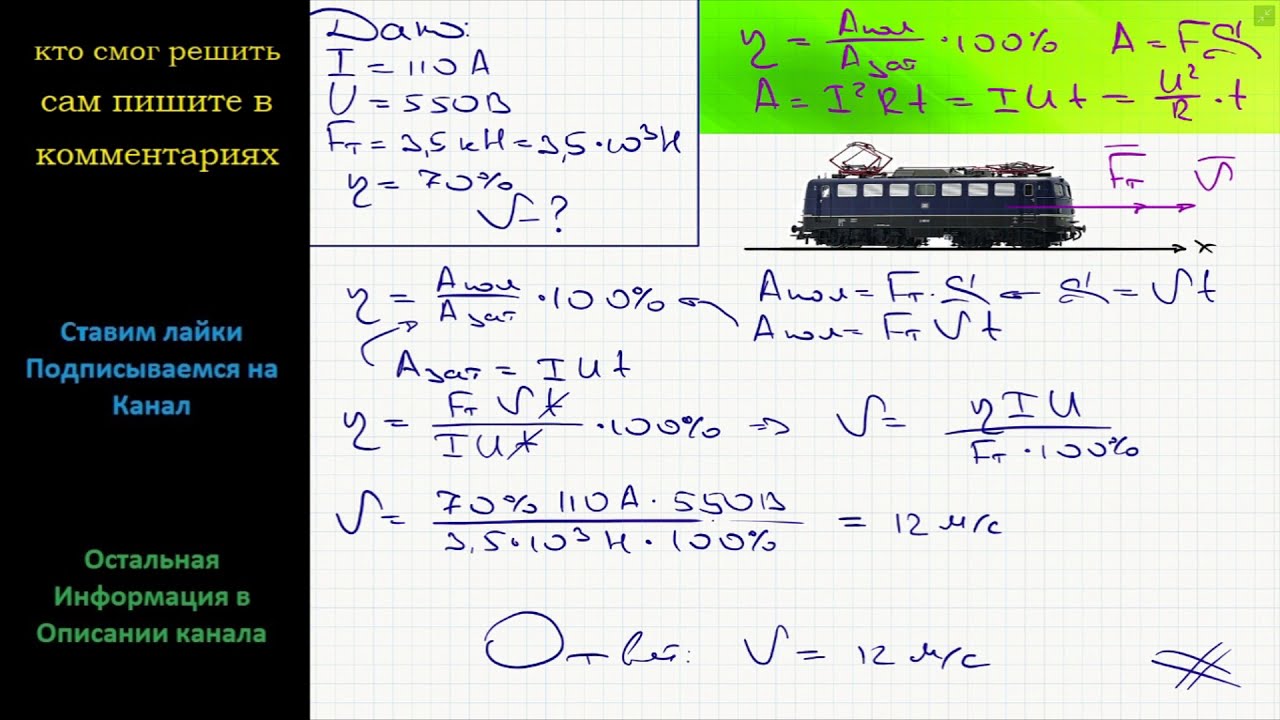 кто смог решить
сам пишите в
комментариях
Ставим лайки
Подписываемся на
Канал
Остальная
Информация в
Описании канала
Дано:
I = 110 А
U = 550 В
Fт = 3,5 кН = 3,5·10³ Н
η = 70%
V - ?
η = Aпол / Aзат · 100%   A = FS
A = I²Rt = IUt = U²/R · t
Fт V
x
η = Aпол / Aзат · 100%
Aзат = IUt
Aпол = Fт · S ← S = Vt
Aпол = Fт V t
η = Fт V t / IUt · 100% => V = ηIU / Fт · 100%
V = 70% 110 А · 550 В / 3,5·10³ Н · 100% = 12 м/с
Ответ: V = 12 м/с